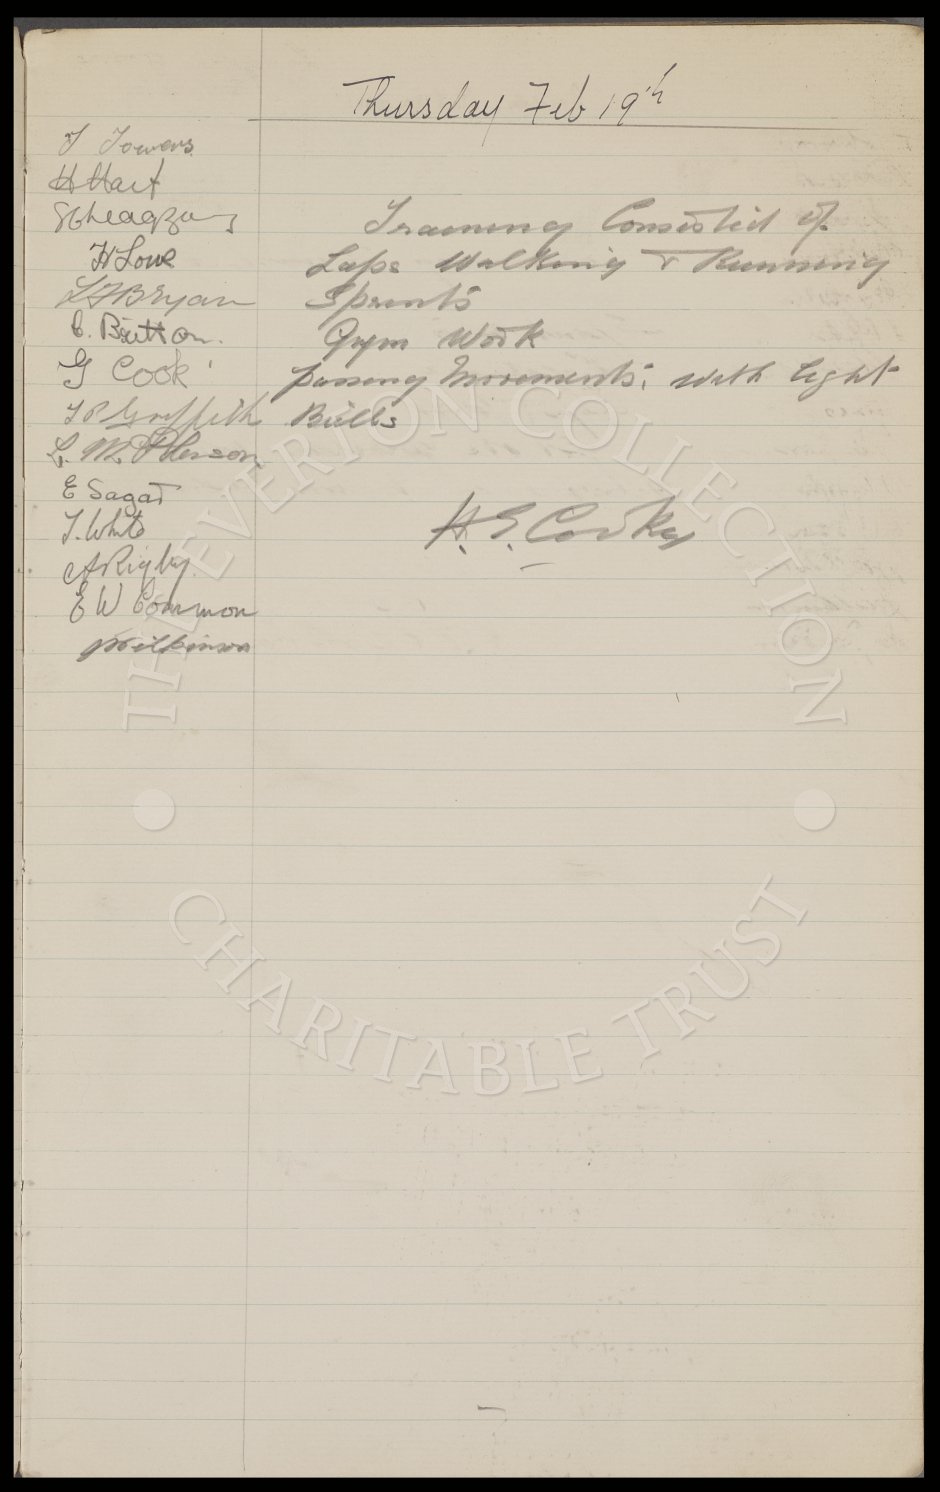 Thursday Feb 19th
J Towers
H Hart
H Lowe
L F Bryan
C. Britton.
G Cook
T P Griffith
L. McPherson
E Sagar
T. White
A Rigby
E W Common
Wilkinson
Training Consisted of.
Laps Walking & Running
Sprints
Gym Work
passing movements. with light
Balls
H. E. Cooke
THE EVERTON COLLECTION
CHARITABLE TRUST